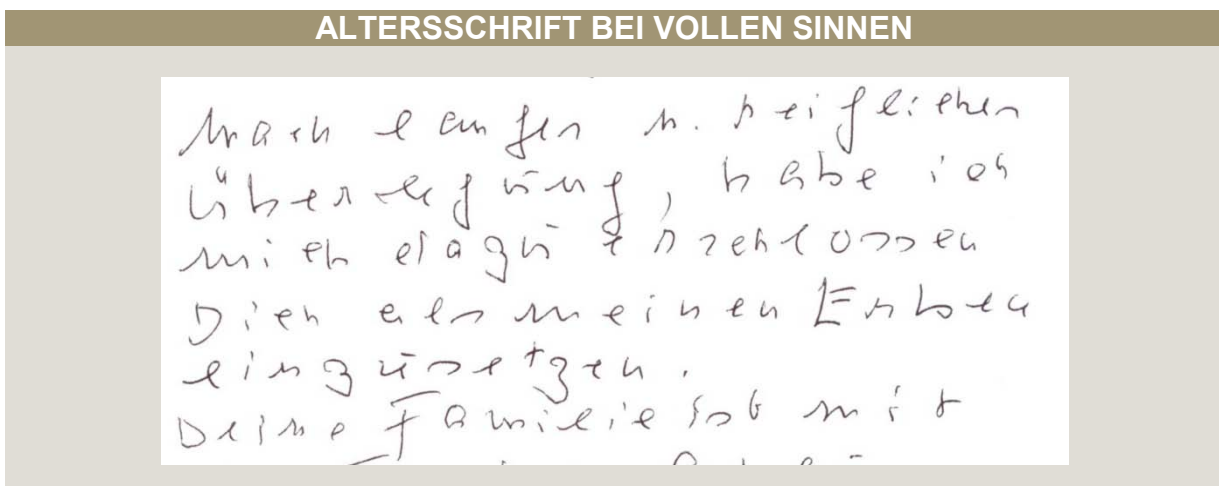 ALTERSSCHRIFT BEI VOLLEN SINNEN
Nach langen u. reiflichen
Überlegung, habe ich
mich dazu entschlossen
Dich als meinen Erben
einzusetzen.
Deine Familie ist mit